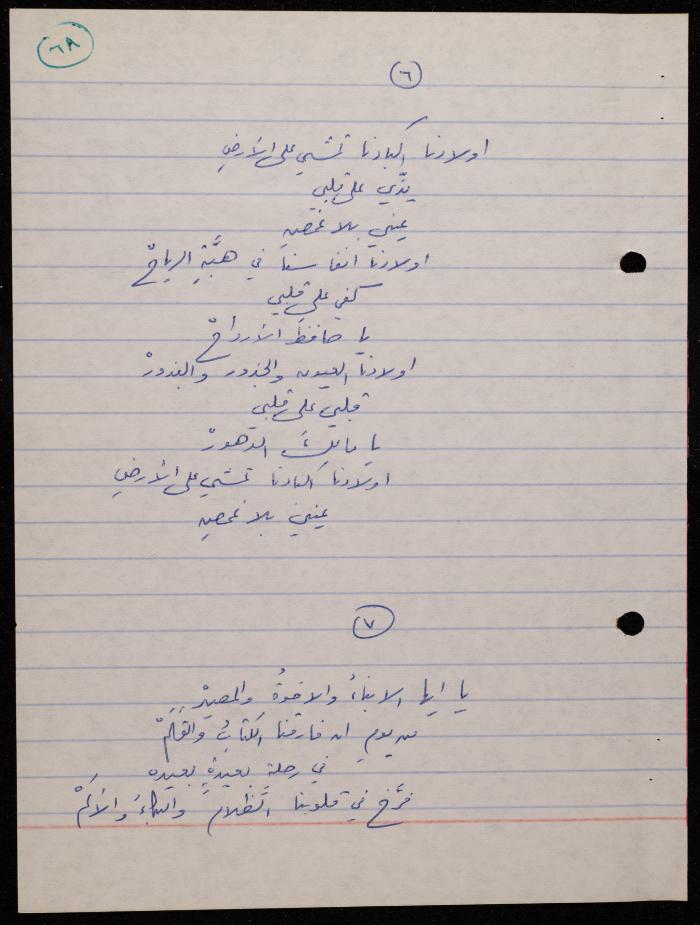 ٦٨
٦
اولادنا اكبادنا تمشي على الأرضِ
يدّي على قلبي
عيني بلا غمضِ
اولادنا انفاسنا في هبَّةِ الرياحْ
كفي على قلبي
يا حافظَ الأرواحْ
اولادنا العيون والجذور والبذورْ
قلبي على قلبي
يا مالكَ الدهورْ
اولادنا اكبادنا تمشي على الأرضِ
عيني بلا غمضِ
٧
يا ايها الابناءُ والاخوةُ والمصيرْ..
من يومِ ان فارقنا الكتابُ والقلَمْ
في رحلةٍ بعيدةٍ بعيده
فرَّخ في قلوبنا الظلامُ والبكاءُ والأَلَمْ